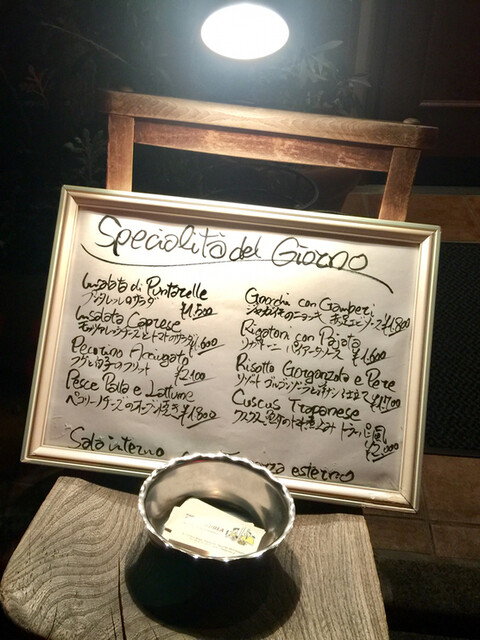 Specialità del Giorno
Insalata di Puntarelle
プンタレッレのサラダ ¥1,500
Insalata Caprese
モッツァレラチーズとトマトのサラダ ¥1,600
Pecorino
¥2,100
Pesce Palla e Lattume
ペコリーノチーズのオーブン焼き ¥1,800
Gnocchi con Gamberi
ジャガイモのニョッキ ¥1,800
Rigatoni con Pajata
リガトーニ パイアータソース ¥1,600
Risotto Gorgonzola e Pere
リゾット ゴルゴンゾーラと洋ナシ ¥1,700
Cuscus Trapanese
クスクス トラーパニ風
¥2,000
Sala interno esterno